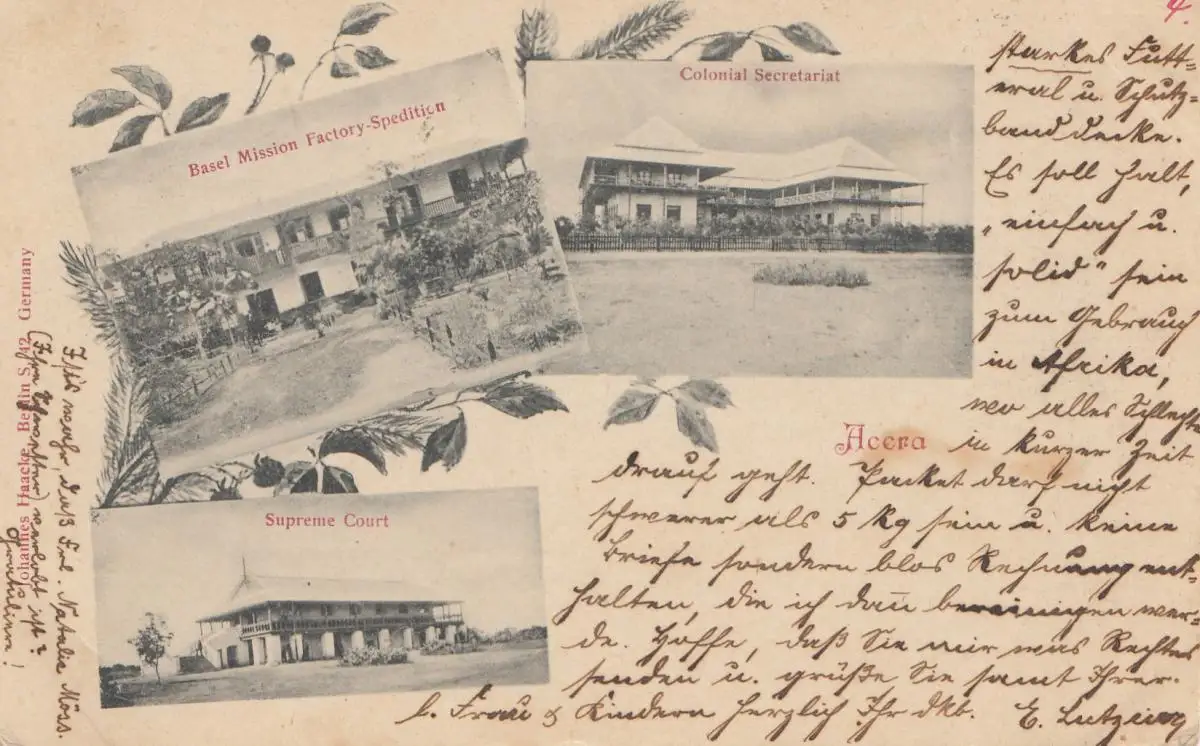 4.
Colonial Secretariat
Basel Mission Factory-Spedition
Supreme Court
Accra
Johannes Haacke, Berlin S. 42 Germany
starkes Futt=
eral u. Schutz=
banddecke.
Es soll halt,
„einfach u.
solid" sein
zum Gebrauch
in Afrika,
wo alles Schlechte
in kurzer Zeit
drauf geht. Packet darf nicht
schwerer als 5 kg sein u. keine
Briefe sondern blos Rechnung ent=
halten, die ich dan̄ bereinigen wer=
de. Hoffe, daß Sie mir was Rechtes
senden u. grüße Sie samt Ihrer
l. Frau & Kindern herzlich Ihr dkb. E.
Ists wahr daß Frl. Natalie Möss.
(Ihre ) verlobt ist?
Gratuliere!